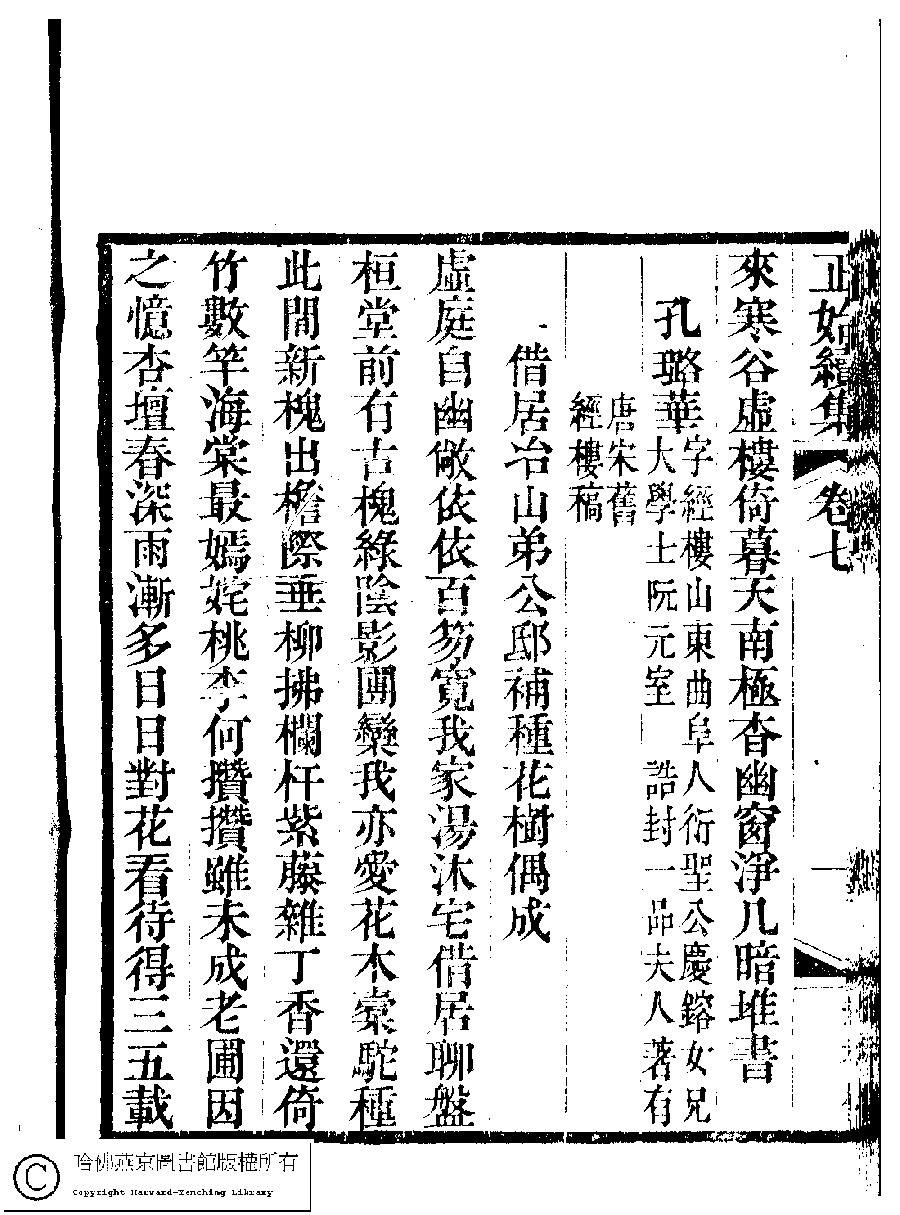 正始續集 卷七 一
來寒谷虛樓倚暮天南極杳幽窗淨几暗堆書
孔璐華字經樓山東曲阜人衍聖公慶鎔女兄
大學士阮元室 誥封一品夫人著有
唐宋舊
經樓稿
借居冶山弟公邸補種花樹偶成
虛庭自幽敞依依百笏寬我家湯沐宅借居聊盤
桓堂前有古槐綠陰影團欒我亦愛花木橐駝種
此間新槐出檐際垂柳拂欄杆紫藤雜丁香還倚
竹數竿海棠最嫣姹桃李何攢攢雖未成老圃因
之憶杏壇春深雨漸多日日對花看待得三五載
哈佛燕京圖書館版權所有
Copyright Harvard-Yenching Library